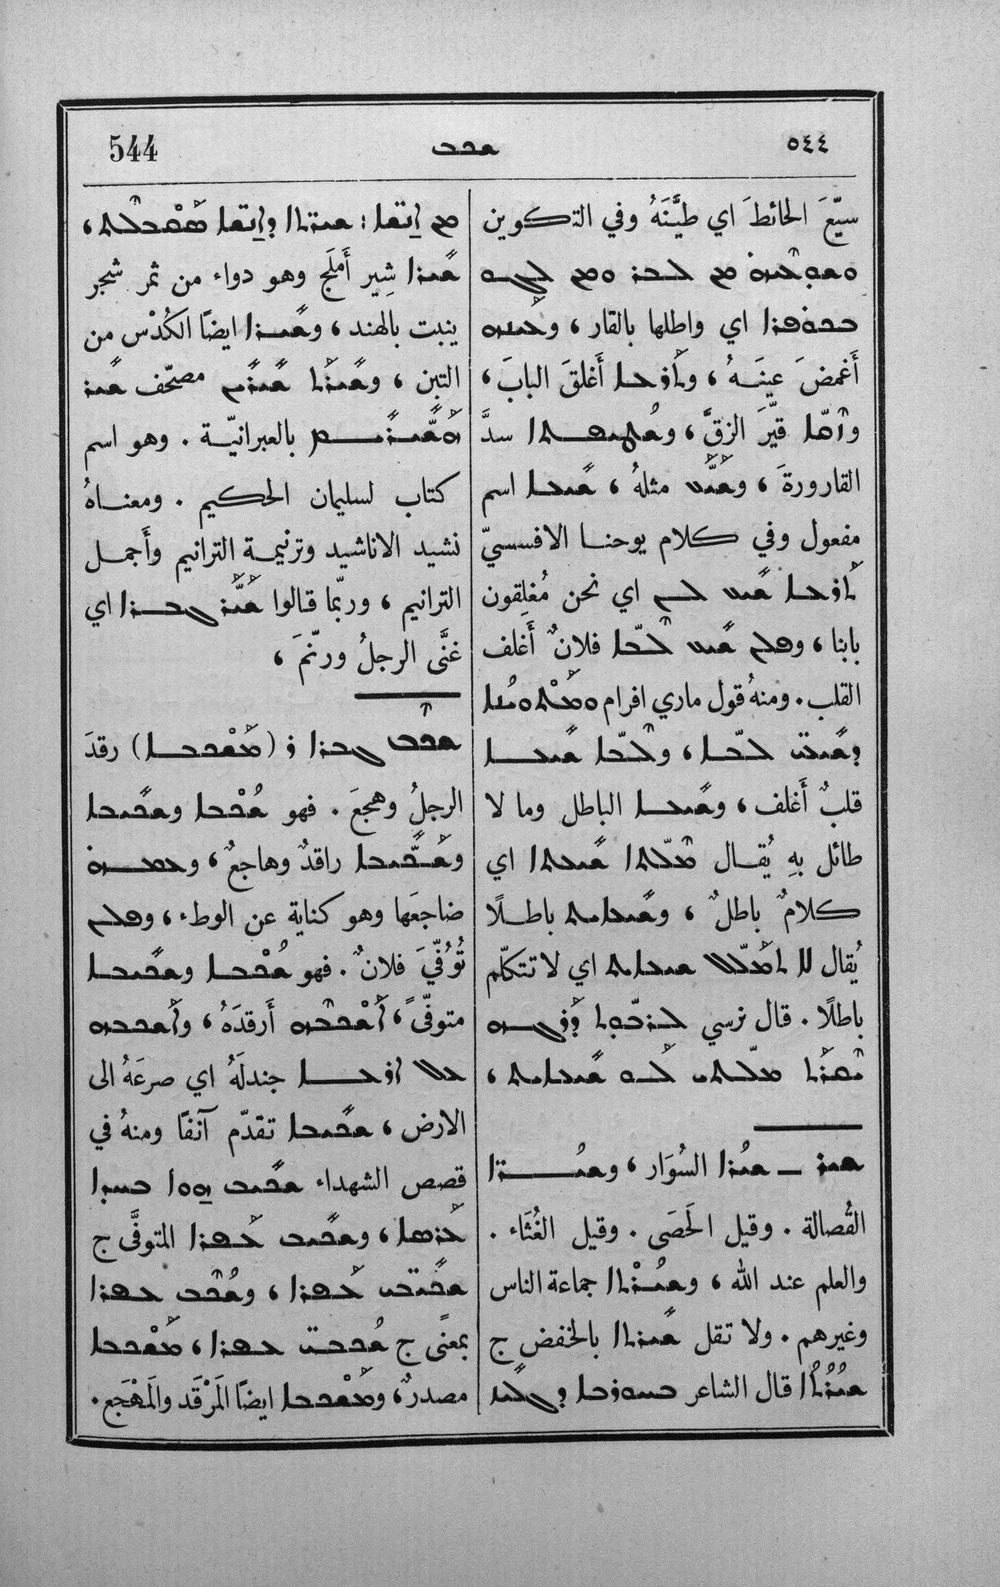 ٥٤٤ ܫܟܒ 544
سيّعَ الحائطَ اي طيَّنَهُ وفي التكوين
ܘܫܘܥܝܗ ܡܢ ܠܒܪ ܘܡܢ ܠܓܘ
ܒܟܘܦܪܐ اي واطلها بالقار ، ܘܥܝܢܗ
أَغمضَ عينَهُ ، ܘܬܪܥܐ أَغلقَ البابَ ،
ܘܙܩܐ قيّرَ الزِقَّ ، سدَّ
القارورةَ ، ܘܫܝܥ مثلهُ ، ܫܝܥܐ اسم
مفعول وفي كلام يوحنا الافسسيّ
ܬܪܥܐ ܫܝܥ ܠܢ اي نحن مُغلِقون
بابنا ، ܘܦܠܢ ܫܝܥ ܠܒܐ فلانٌ أَغلف
القلب . ومنهُ قول ماري افرام
ܕܫܝܥܝ ܠܒܐ ، ܘܠܒܐ ܫܝܥܐ
قلبٌ أَغلف ، ܘܫܝܥܐ الباطل وما لا
طائل بهِ يُقال ܡܠܬܐ ܫܝܥܬܐ اي
كلامٌ باطلٌ ، ܘܫܝܥܐܝܬ باطلًا
يُقال ܠܐ ܬܡܠܠ ܫܝܥܐܝܬ اي لا تتكلّم
باطلًا . قال نرسي
ܫܝܥܐܝܬ ،
ܫܝܪ ــ ܫܝܪܐ السُوَار ، ܘܫܝܪܐ
القُصالة . وقيل الَحصَى . وقيل الغُثَاء .
والعلم عند الله ، ܘܫܝܪܬܐ جماعة الناس
وغيرهم . ولا تقل ܫܝܪܬܐ بالخفض ج
ܫܝܪܬܐ قال الشاعر
ܡܢ ܐܢܫܐ : ܫܝܪܬܐ ܕܐܢܫܐ ܣܡܒܠܬ ،
ܫܝܪܐ شِير أَملَج وهو دواء من ثمر شجر
ينبت بالهند ، ܘܫܝܪܐ ايضًا الكُدْس من
التبن ، ܘܫܝܪܬ ܫܝܪܝܢ مصحّف ܫܝܪ
ܗܫܝܪܝܡ بالعبرانيّة . وهو اسم
كتاب لسليمان الحكيم . ومعناهُ
نشيد الاناشيد وترنيمة الترانيم وأَجمل
الترانيم ، وربّما قالوا ܫܝܪ ܓܒܪܐ اي
غنَّى الرجلُ ورنّمَ ،
ܫܟܒ ܓܒܪܐ ܪ (ܡܫܟܒܐ) رقدَ
الرجلُ وهجعَ . فهو ܫܟܒܐ ܘܫܟܝܒܐ
ܘܫܟܝܒܐ راقدٌ وهاجعٌ ، ܘܥܡܗ
ضاجعَها وهو كناية عن الوطء ، ܘܦܠܢ
تُوُفّيَ فلانٌ . فهو ܫܟܒܐ ܘܫܟܝܒܐ
متوفّىً ، ܐܫܟܒܗ أَرقدَهُ ، ܘܐܫܟܒܗ
ܥܠ ܐܪܥܐ جندلَهُ اي صرعَهُ الى
الارض ، ܫܟܝܒܐ تقدّم آنفًا ومنهُ في
قصص الشهداء ܫܟܝܒ ܗܘܐ ܒܚܕܐ
ܥܪܣܐ ، ܘܫܟܝܒ ܥܦܪܐ المتوفَّى ج
ܫܟܝܒܝ ܥܦܪܐ ، ܘܫܟܒ ܥܦܪܐ
بمعنىً ج ܫܟܒܝ ܥܦܪܐ ، ܡܫܟܒܐ
مصدرٌ ، ܘܡܫܟܒܐ ايضًا الَمرْقَد والَمهْجَع .